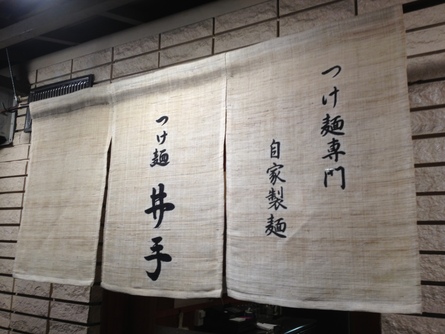 つけ麺専門
自家製麺
つけ麺
井手